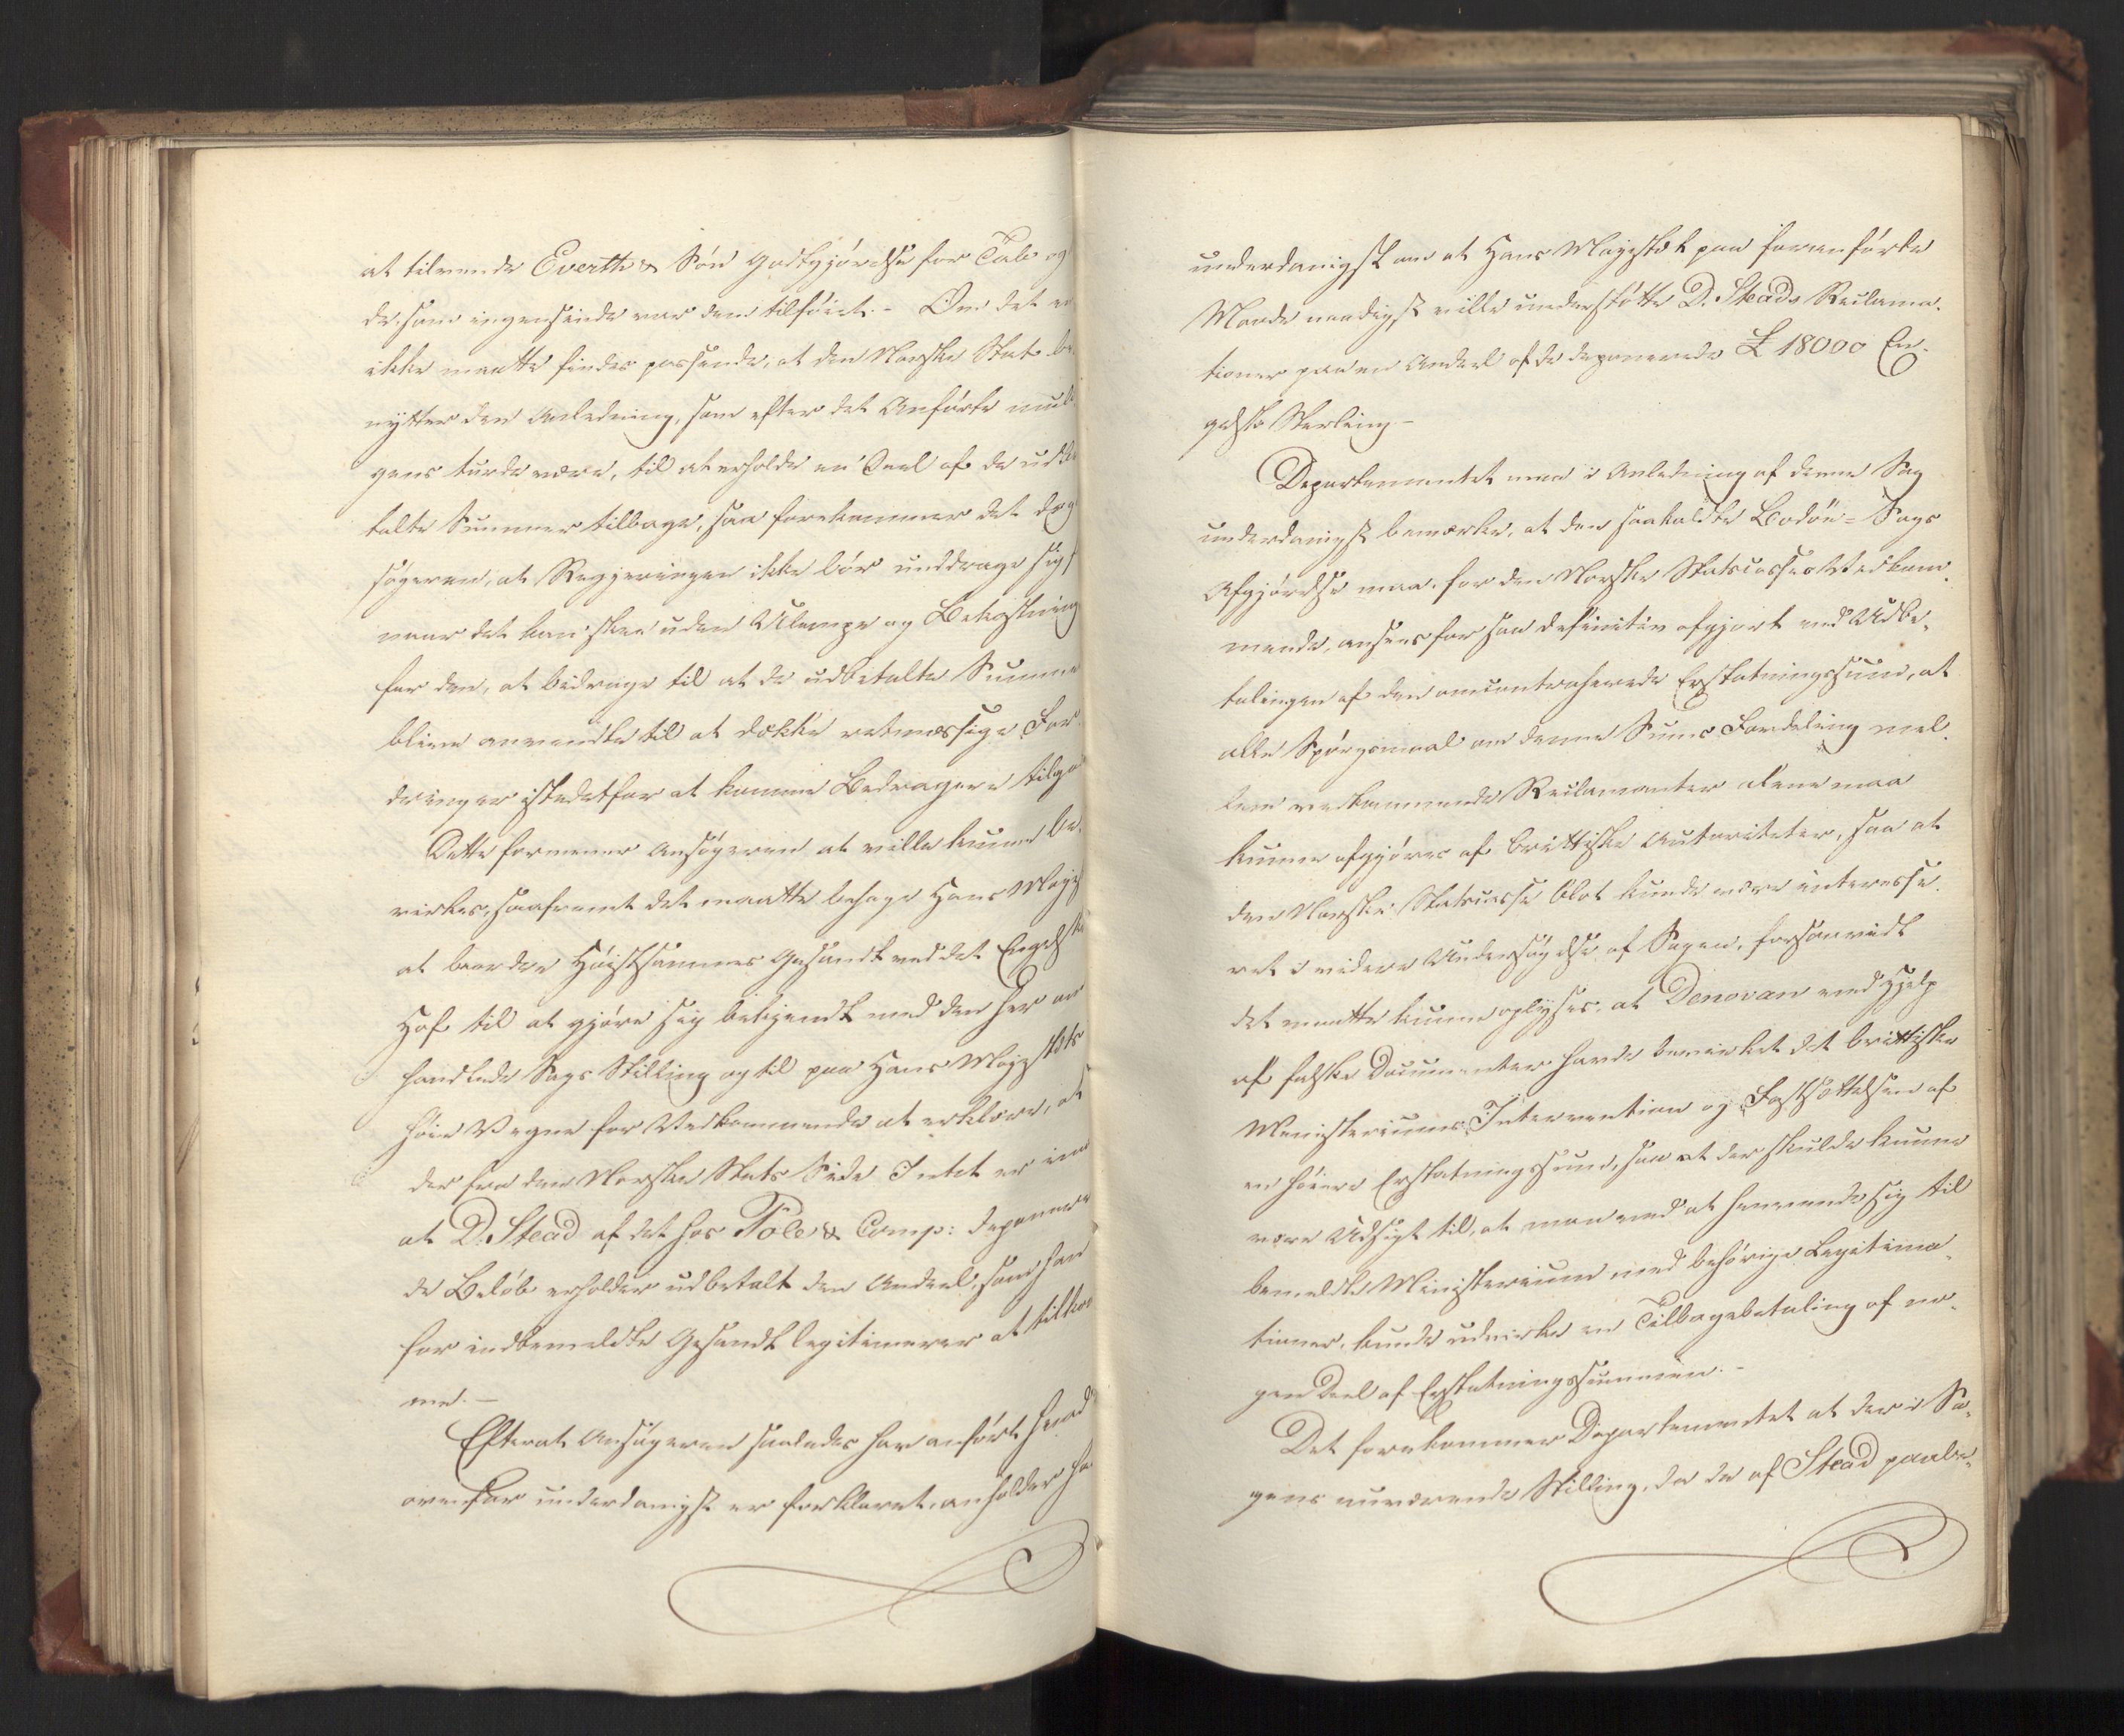 at tilvende Everth & Søn Godtgjørelse for Tab og
de, som ingensinde var dem tilføiet. - Om det en
ikke maatte findes passende, at den Norske Stat be-
nytter den Anledning, som efter det Anførte mule
gens turde være, til at erholde en Deel af de udbe
talte Summer tilbage, saa forekommer det dog
søgeren, at Regjeringen ikke bør unddrage sig,
naar det kan skee uden Ulempe og Bekostning
for den, at bidrage til at de udbetalte Summe
blive anvendte til at dække retmæssige For
dringer istedetfor at komme Bedragere tilgo
Dette formener Ansøgeren at ville kunne be-
virkes, saafremt det maatte behage Hans Majes
at beordre Høistsammes Gesandt ved det Engelske
Hof til at gjøre sig bekjendt med den her om
handlede Sags Stilling og til paa Hans Majestæts
høie Vegne for Vedkommende at erklære, at
der fra den Norske Stats Side Intet er imo
at D. Stead af det hos Pole & Comp: deponere
de Beløb erholder udbetalt den Andeel, som han
for indbemeldte Gesandt legitimerer at tilkom
me. -
Efterat Ansøgeren saaledes har anført hvad
ovenfor underdanigst er forklaret, anholder ha
underdanigst om at Hans Majestæt paa foranførte
Maade naadigst ville understøtte D. Steads Reclama-
tioner paa en Andeel af de deponerede £ 18000 En-
gelske Sterling -
Departementet maa i Anledning af denne Sag
underdanigst bemærke, at den saakaldte Bodøe-Sags
Afgjørelse maa, for den Norske Statscasses Vedkom-
mende, ansees for saa definitiv afgjort ved Udbe-
talingen af den omcontraherede Erstatningssum, at
alle Spørgsmaal om denne Sums Fordeling mel-
lem vedkommende Reclamanter alene maa
kunne afgjøres af brittiske Autoriteter, saa at
den Norske Statscasse blot kunde være interesse-
ret i videre Undersøgelse af Sagen, forsaavidt
det maatte kunne oplyses, at Denovan ved Hjelp
af falske Documenter havde bevirket det brittiske
Ministeriums Intervention og Fastsættelsen af
en høiere Erstatningssum, saa at der skulde kunne
være Udsigt til, at man ved at henvende sig til
bemeldte Ministerium med behørige Legitima-
tioner, kunde udvirke en Tilbagebetaling af no-
gen Deel af Erstatningssummen. -
Det forekommer Departementet at der i Sa-
gens nuværende Stilling, da de af Stead paabe-